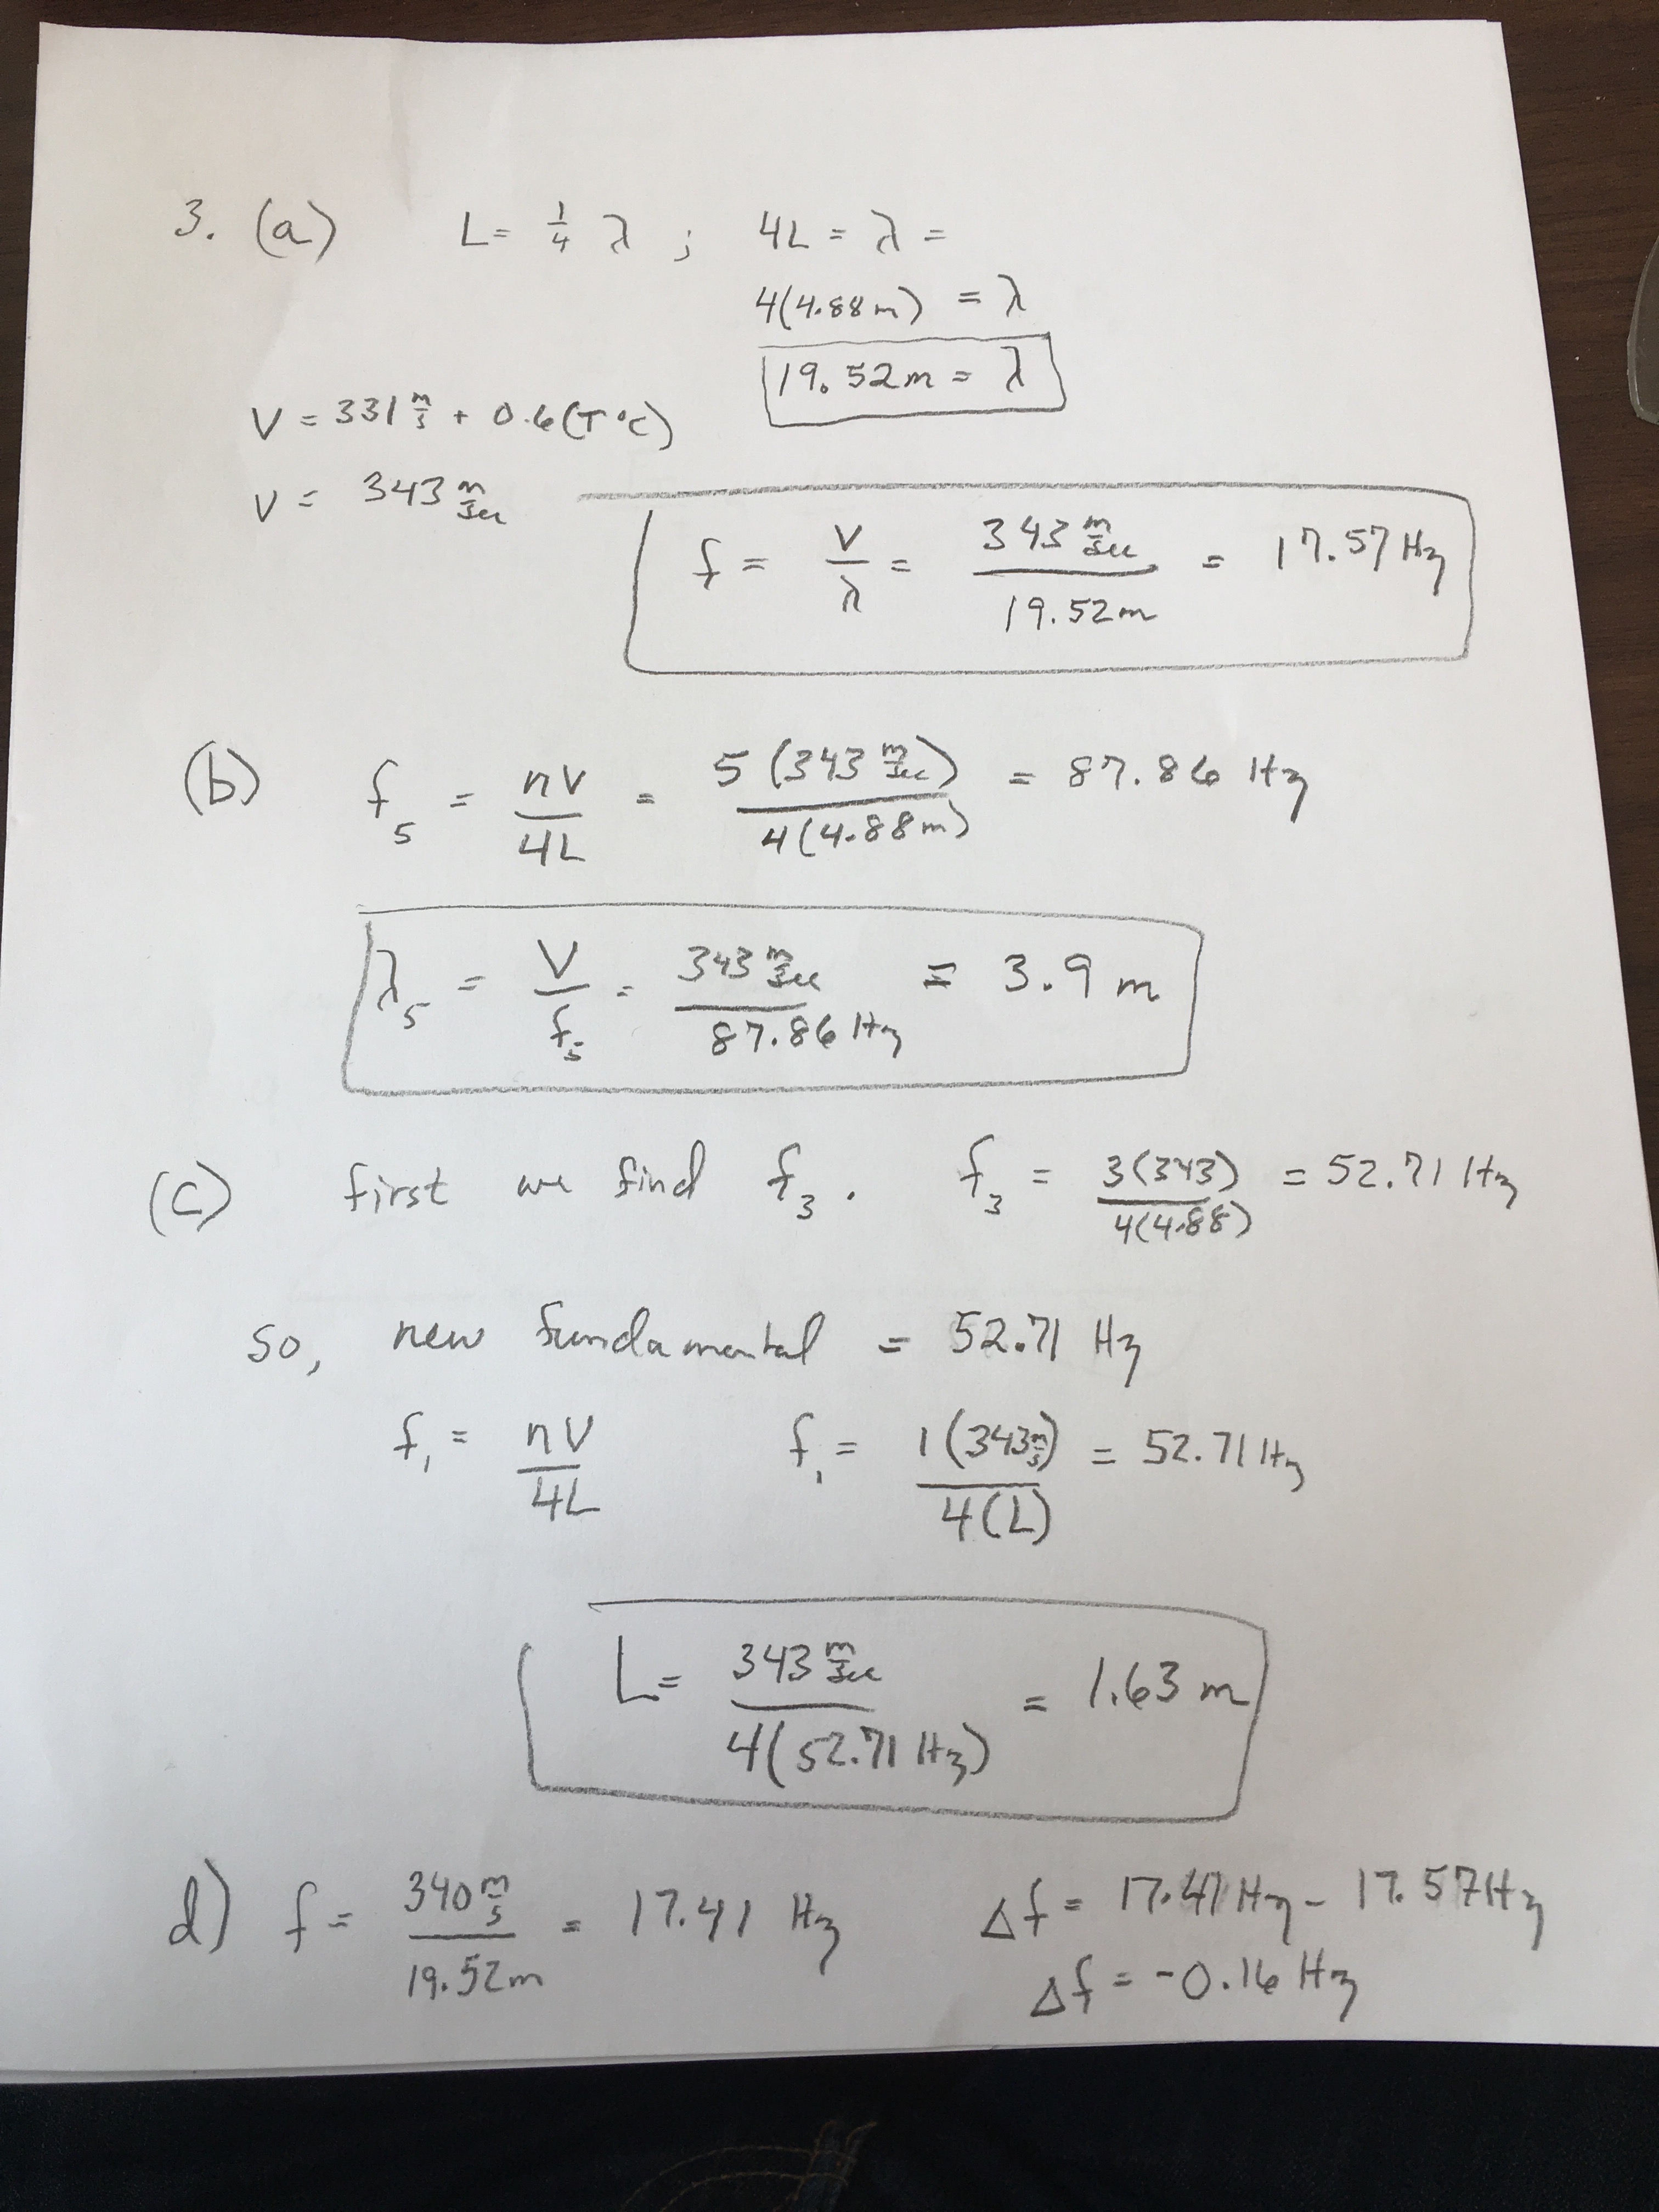 3. (a) L = 1/4 λ ; 4L = λ =
4(4.88m) = λ
19.52m = λ
V = 331 m/s + 0.6(T°C)
V = 343 m/sec
f = V/λ = 343 m/sec / 19.52m = 17.57 Hz
(b) f₅ = nV/4L = 5(343 m/sec)/4(4.88m) = 87.86 Hz
λ₅ = V/f₅ = 343 m/sec / 87.86 Hz = 3.9 m
(c) first we find f₃. f₃ = 3(343)/4(4.88) = 52.71 Hz
so, new fundamental = 52.71 Hz
f₁ = nV/4L f₁ = 1(343 m/s)/4(L) = 52.71 Hz
L = 343 m/sec / 4(52.71 Hz) = 1.63 m
d) f = 340 m/s / 19.52m = 17.41 Hz Δf = 17.41 Hz - 17.57 Hz
Δf = -0.16 Hz